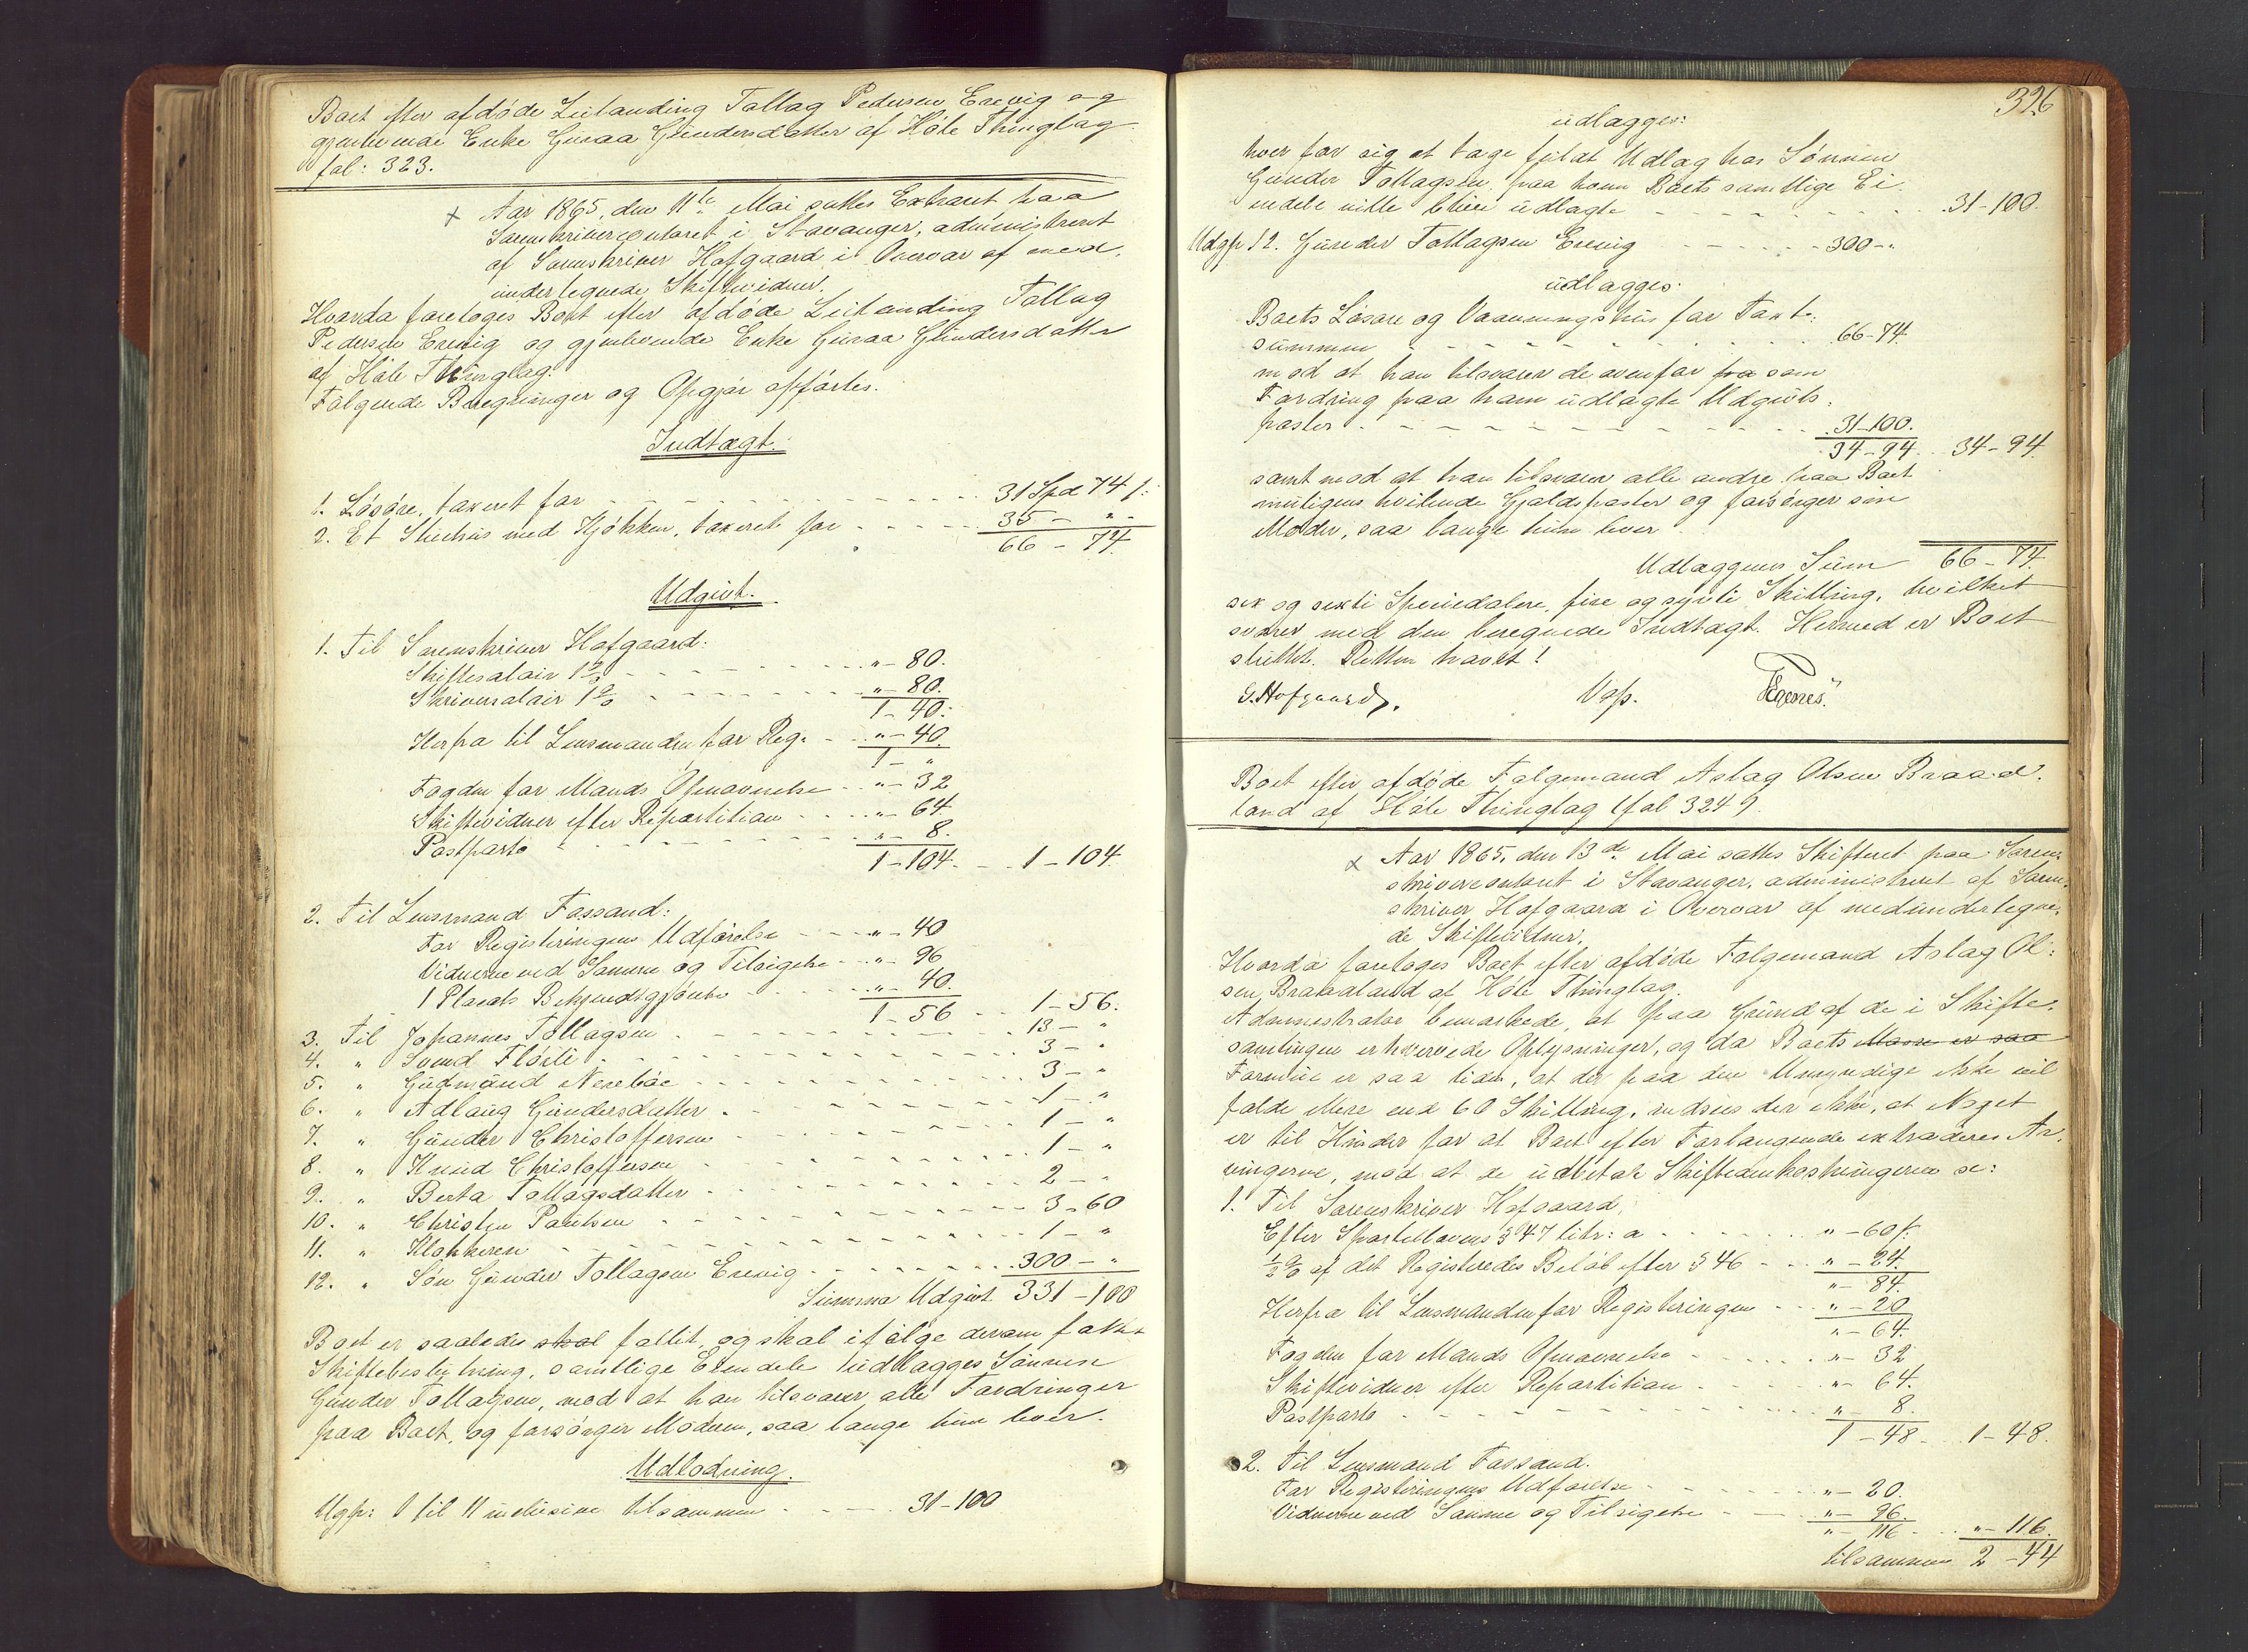 Boet efter afdøde Leilænding Tollag Pedersen Erevig og
gjenlevende Enke Guraa Gundersdatter af Høle Thinglag
fol: 323.
+ Aar 1865, den 11te Mai sattes Extraret paa
Sorenskrivercontoret i Stavanger, administreret
af Sorenskriver Hofgaard i Overvær af med,
undertegnede Skiftevidner.
Hvorda foretoges Boet efter afdøde Leilænding Tollag
Pedersen Erevig og gjenlevende Enke Guraa Gundersdatter
af Høle Thinglag.
Følgende Beregninger og Opgjør opførtes.
Indtægt:
1. Løsøre, taxeret for - - - 31 Spd 74 ſ:
2. Et Stuehus med Kjøkken, taxeret for - - - 35 - " -
66 - 74.
Udgivt.
1. Til Sorenskriver Hofgaard:
Skiftesalair 1% - - - " - 80.
Skriversalair 1% - - - " - 80.
1 - 40.
Herfra til Lensmanden for Reg. - - " - 40.
1 - "
Fogden for Mands Opnævnelse - - " - 32
Skiftevidner efter Repartition - - - " - 64.
Postporto - - - " - 8.
1 - 104. - - 1 - 104.
2. Til Lensmand Fossand:
For Registeringens Udførelse - - - " - 40
Vidnerne ved Samme og Tilsigelse - - " - 96
1 Placats Bekjendtgjørelse - - - " - 40.
1 - 56 - - 1 - 56.
3. Til Johannes Tollagsen - - - 13 - "
4. " Svend Fløili - - - 3 - "
5. " Gudmund Nerebøe - - - 3 - "
6. " Adlaug Gundersdatter - - - 1 - "
7. " Gunder Christoffersen - - - 1 - "
8. " Knud Christoffersen - - - 1 - "
9. " Berta Tollagsdatter - - - 2 - "
10. " Christen Paulsen - - - 3 - 60
11. " Klokkeren - - - 1 - "
12. " Søn Gunder Tollagsen Erevig - - - 300 - "
Summa Udgivt 331 - 100
Boet er saaledes skal fallit, og skal ifølge derom fattet
Skiftebeslutning, samtlige Eiendele udlægges Sønnen
Gunder Tollagsen, mod at han tilsvarer alle Fordringer
paa Boet, og forsørger Moderen, saa længe hun lever.
Udlodning.
Ugp: 1 til 11 inclusive tilsammen - - - 31 - 100
326
udlægges:
hver for sig at tage fuldt Udlæg hos Sønnen
Gunder Tollagsen, paa hvem Boets samtlige Ei,
endele ville blive udlagte - - - 31 - 100.
Udgp 12. Gunder Tollagsen Erevig - - - 300 - "
udlægges:
Boets Løsøre og Vaaningshus for Taxt:
summen - - - 66 - 74.
mod at han tilsvarer de ovenfor fra som
Fordring paa ham udlagte Udgivts:
poster - - - 31 - 100.
34 - 94. - - 34 - 94.
samt mod at han tilsvarer alle andre paa Boet
muligens hvilende Gjældsposter og forsørger sin
Moder, saa længe hun lever
Udlæggenes Sum 66 - 74.
sex og sexti Speciedaler, fire og sytti Skilling, hvilket
svarer med den beregnede Indtægt. Hermed er Boet
sluttet. Retten hævet!
G. Hofgaard. Vop. TEgenes.
Boet efter afdøde Følgemand Aslag Olsen Braad,
land af Høle Thinglag (fol 324).
+ Aar 1865, den 13de Mai sattes Skifteret paa Soren,
skrivercontoret i Stavanger, administreret af Soren,
skriver Hofgaard i Overvær af medundertegne,
de Skiftevidner.
Hvorda foretoges Boet efter afdøde Følgemand Aslag Ol:
sen, Braadland af Høle Thinglag.
Administrator bemærkede, at paa Grund af de i Skifte,
samlingen erhvervede Oplysninger, og da Boets Masse er saa
Formue er saa liden, at der paa den Umyndige ikke vil
falde Mere end 60 Skilling, indsees der ikke, at Noget
er til Hinder for at Boet efter Forlangende extraderes Ar,
vingerne, mod at de udbetale Skifteomkostningerne se:
1. Til Sorenskriver Hofgaard,
Efter Sportellovens § 47 litr: a - - - " - 60 ſ.
½ % af det Registeredes Beløb efter § 46 - - - " - 24.
" - 84.
Herfra til Lensmanden for Registeringen - - - " - 20
" - 64.
Fogden for Mands Opnævnelse - - - " - 32
Skiftevidner efter Repartition - - - " - 64.
Postporto - - - " - 8.
1 - 48 - - 1 - 48.
2. Til Lensmand Fossand.
For Registeringens Udførelse - - - " - 20.
Vidnerne ved Samme og Tilsigelse - - - " - 96.
" - 116 - - " - 116.
tilsammen 2 - 44